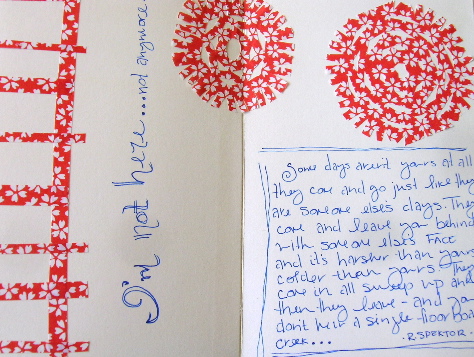 I'm not here.... not anymore.
Some days aren't yours at all
they come and go just like they
are someone elses days. They
come and leave you behind
with someone elses FACE
and it's harsher than yours
colder than yours They
come in all sweep up and
then they leave - and you
don't hear a single floor board
creek...
. R SPEKTOR .